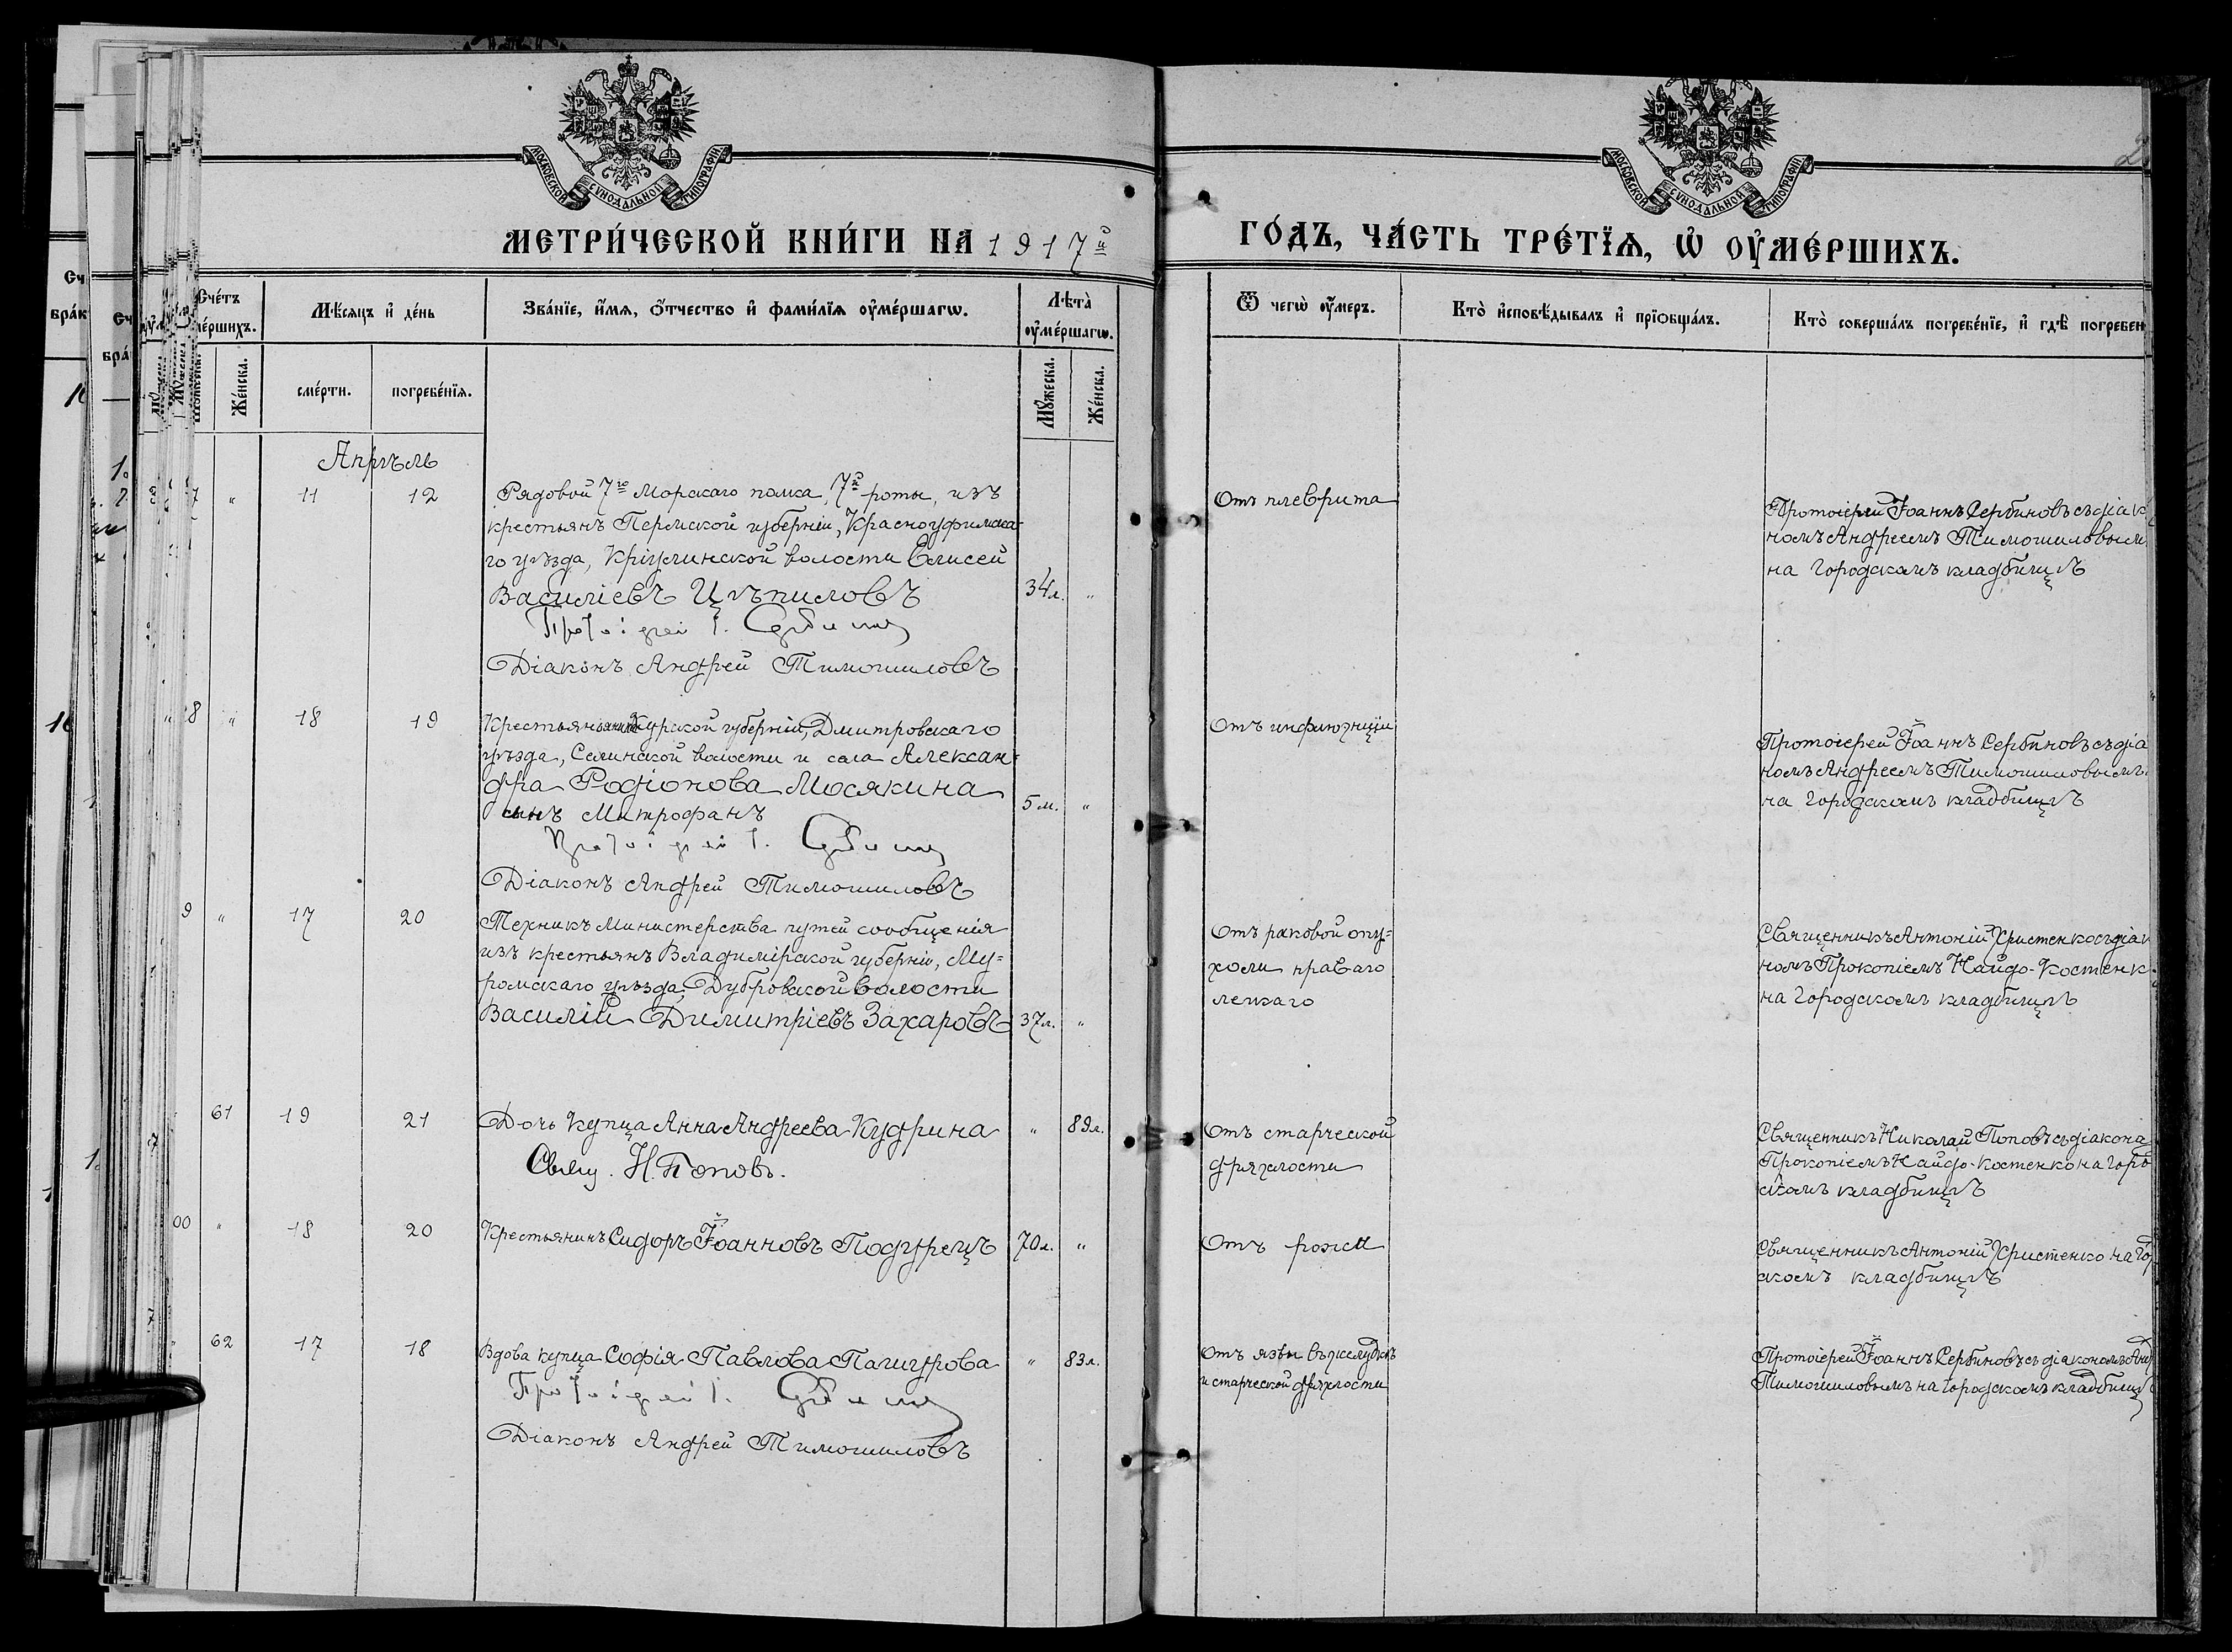 МОСКОВСКОЙ СУНОДАЛЬНОЙ ТИПОГРАФІИ
МОСКОВСКОЙ СУНОДАЛЬНОЙ ТИПОГРАФІИ
МЕТРИ́ЧЕСКОЙ КНИ́ГИ НА 1917й
ГО́ДЪ, ЧА́СТЬ ТРЕ́ТЇѦ, Ѡ҆ ОУ҆МЕ́РШИХЪ.
Счетъ
Мѣ́сѧцъ и҆ де́нь
Зва́нїе, и҆́мѧ, ѻ҆́тчество и҆ фами́лїѧ оу҆ме́ршагѡ.
Лѣ́та оу҆ме́ршагѡ.
Ѿ чегѡ̀ оу҆́меръ.
Кто̀ и҆сповѣ́дывалъ и҆ прїѻбща́лъ.
Кто̀ соверша́лъ погребе́нїе, и҆ гдѣ̀ погребен
Же́нска.
сме́рти.
погребе́нїѧ.
Мꙋ́жеска.
Же́нска.
Апрѣль
7 " 11 12
Рядовой 7го Морскаго полка, 7й роты, изъ
крестьянъ Пермской губерніи, Красноуфимска-
го уѣзда, Кріулинской волости Елисей
Василіевъ Цѣпиловъ 34л. "
Протоіерей І. Сербиновъ
Діаконъ Андрей Тимошиловъ
Отъ плеврита
Протоіерей Іоаннъ Сербиновъ съ діак
номъ Андреемъ Тимошиловым
на городскомъ кладбищѣ
8 " 18 19
Курской губерніи, Дмитровскаго
уѣзда, Селинской волости и села Алексан-
дра Родіонова Мосякина
сынъ Митрофанъ 5 м. "
Протоіерей І. Сербиновъ
Діаконъ Андрей Тимошиловъ
Отъ инфлюэнціи
Протоіерей Іоаннъ Сербиновъ съ діа
номъ Андреемъ Тимошиловымъ
на городскомъ кладбищѣ
9 " 17 20
Техникъ Министерства путей сообщенія
изъ крестьянъ Владимірской губерніи, Му-
ромскаго уѣзда, Дубровской волости
Василій Димитріевъ Захаровъ 37л. "
Отъ раковой опу-
холи праваго
легкаго
Священникъ Антоній Христенко съ діак
номъ Прокопіемъ Найдо-Костенк
на городскомъ кладбищѣ
61 19 21
Дочь купца Анна Андреева Кудрина " 89л.
Свящ. Н. Поповъ.
Отъ старческой
дряхлости
Священникъ Николай Поповъ съ діакона
Прокопіемъ Найдо-Костенко на город
скомъ кладбищѣ
00 " 18 20
Крестьянинъ Сидоръ Іоанновъ Подурецъ 70л. "
Отъ рожи
Священникъ Антоній Христенко на го
скомъ кладбищѣ
62 17 18
Вдова купца Софія Павлова Пашурова " 83л.
Протоіерей І. Сербиновъ
Діаконъ Андрей Тимошиловъ
Отъ язвы въ желудкѣ
и старческой дряхлости
Протоіерей Іоаннъ Сербиновъ съ діакономъ Анд
Тимошиловымъ на городскомъ кладбищѣ